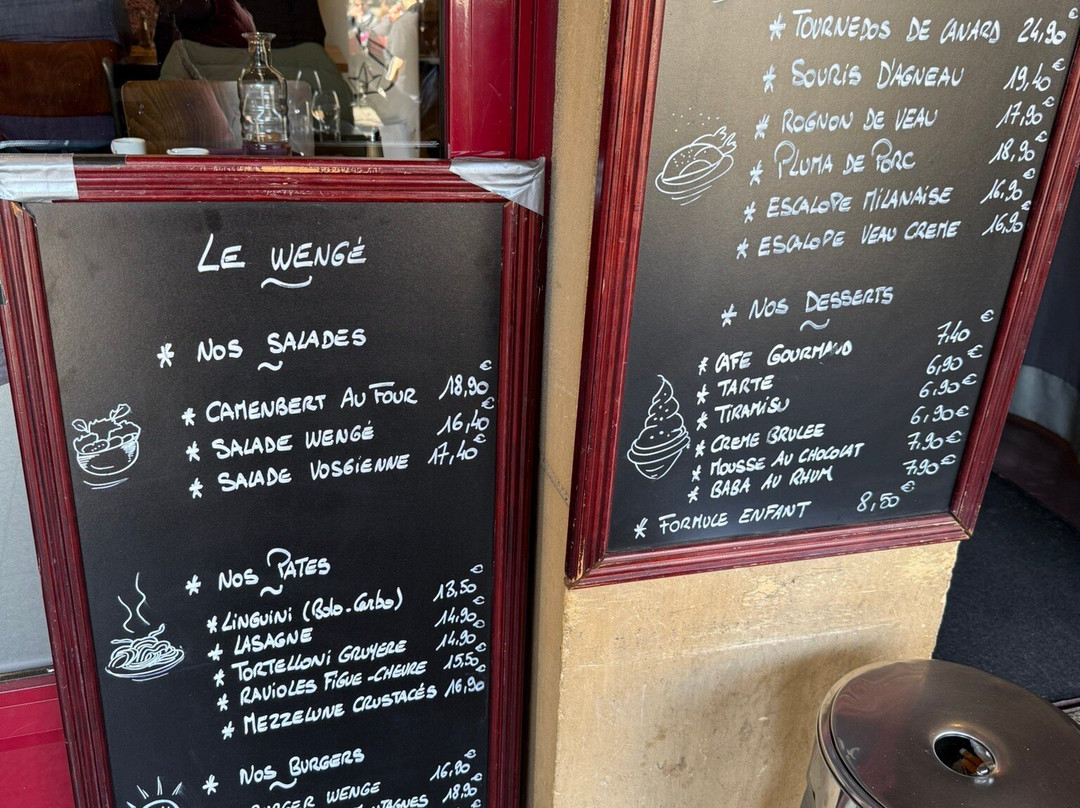 LE WENGÉ
* NOS SALADES
* CAMENBERT AU FOUR 18,90€
* SALADE WENGÉ 16,40€
* SALADE VOSGIENNE 17,40€
* NOS PATES
* LINGUINI (Bolo-Carbo) 13,50€
* LASAGNE 14,90€
* TORTELLONI GRUYERE 14,90€
* RAVIOLES FIGUE-CHEVRE 15,50€
* MEZZELUNE CRUSTACÉS 16,90€
* NOS BURGERS
BURGER WENGE 16,90€
18,90€
* TOURNEDOS DE CANARD 24,90€
* SOURIS D'AGNEAU 19,40€
* ROGNON DE VEAU 17,90€
* PLUMA DE PORC 18,90€
* ESCALOPE MILANAISE 16,90€
* ESCALOPE VEAU CREME 16,90€
* NOS DESSERTS
* CAFE GOURMAND 7,40€
* TARTE 6,90€
* TIRAMISU 6,90€
* CREME BRULEE 6,90€
* MOUSSE AU CHOCOLAT 7,90€
* BABA AU RHUM 7,90€
* FORMULE ENFANT 8,50€